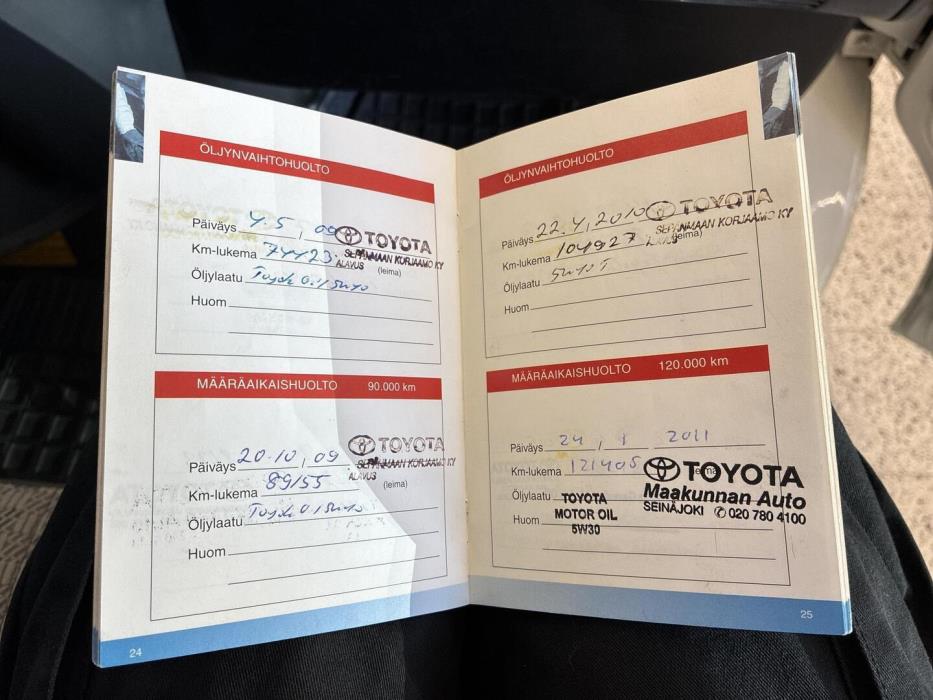 ÖLJYNVAIHTOHUOLTO
Päiväys 4.5, 09 TOYOTA
Km-lukema 74423 SEPÄNMAAN KORJAAMO KY
ALAVUS (leima)
Öljylaatu
Huom
MÄÄRÄAIKAISHUOLTO 90.000 km
Päiväys 20.10, 09 TOYOTA
Km-lukema 89155 SEPÄNMAAN KORJAAMO KY
ALAVUS (leima)
Öljylaatu
Huom
24
ÖLJYNVAIHTOHUOLTO
Päiväys 22.4, 2010 TOYOTA
Km-lukema 104927 SEPÄNMAAN KORJAAMO KY
ALAVUS (leima)
Öljylaatu
Huom
MÄÄRÄAIKAISHUOLTO 120.000 km
Päiväys 24, 1 2011
Km-lukema 121405 TOYOTA
Maakunnan Auto
SEINÄJOKI ✆ 020 780 4100
Öljylaatu TOYOTA
MOTOR OIL
Huom 5W30
25